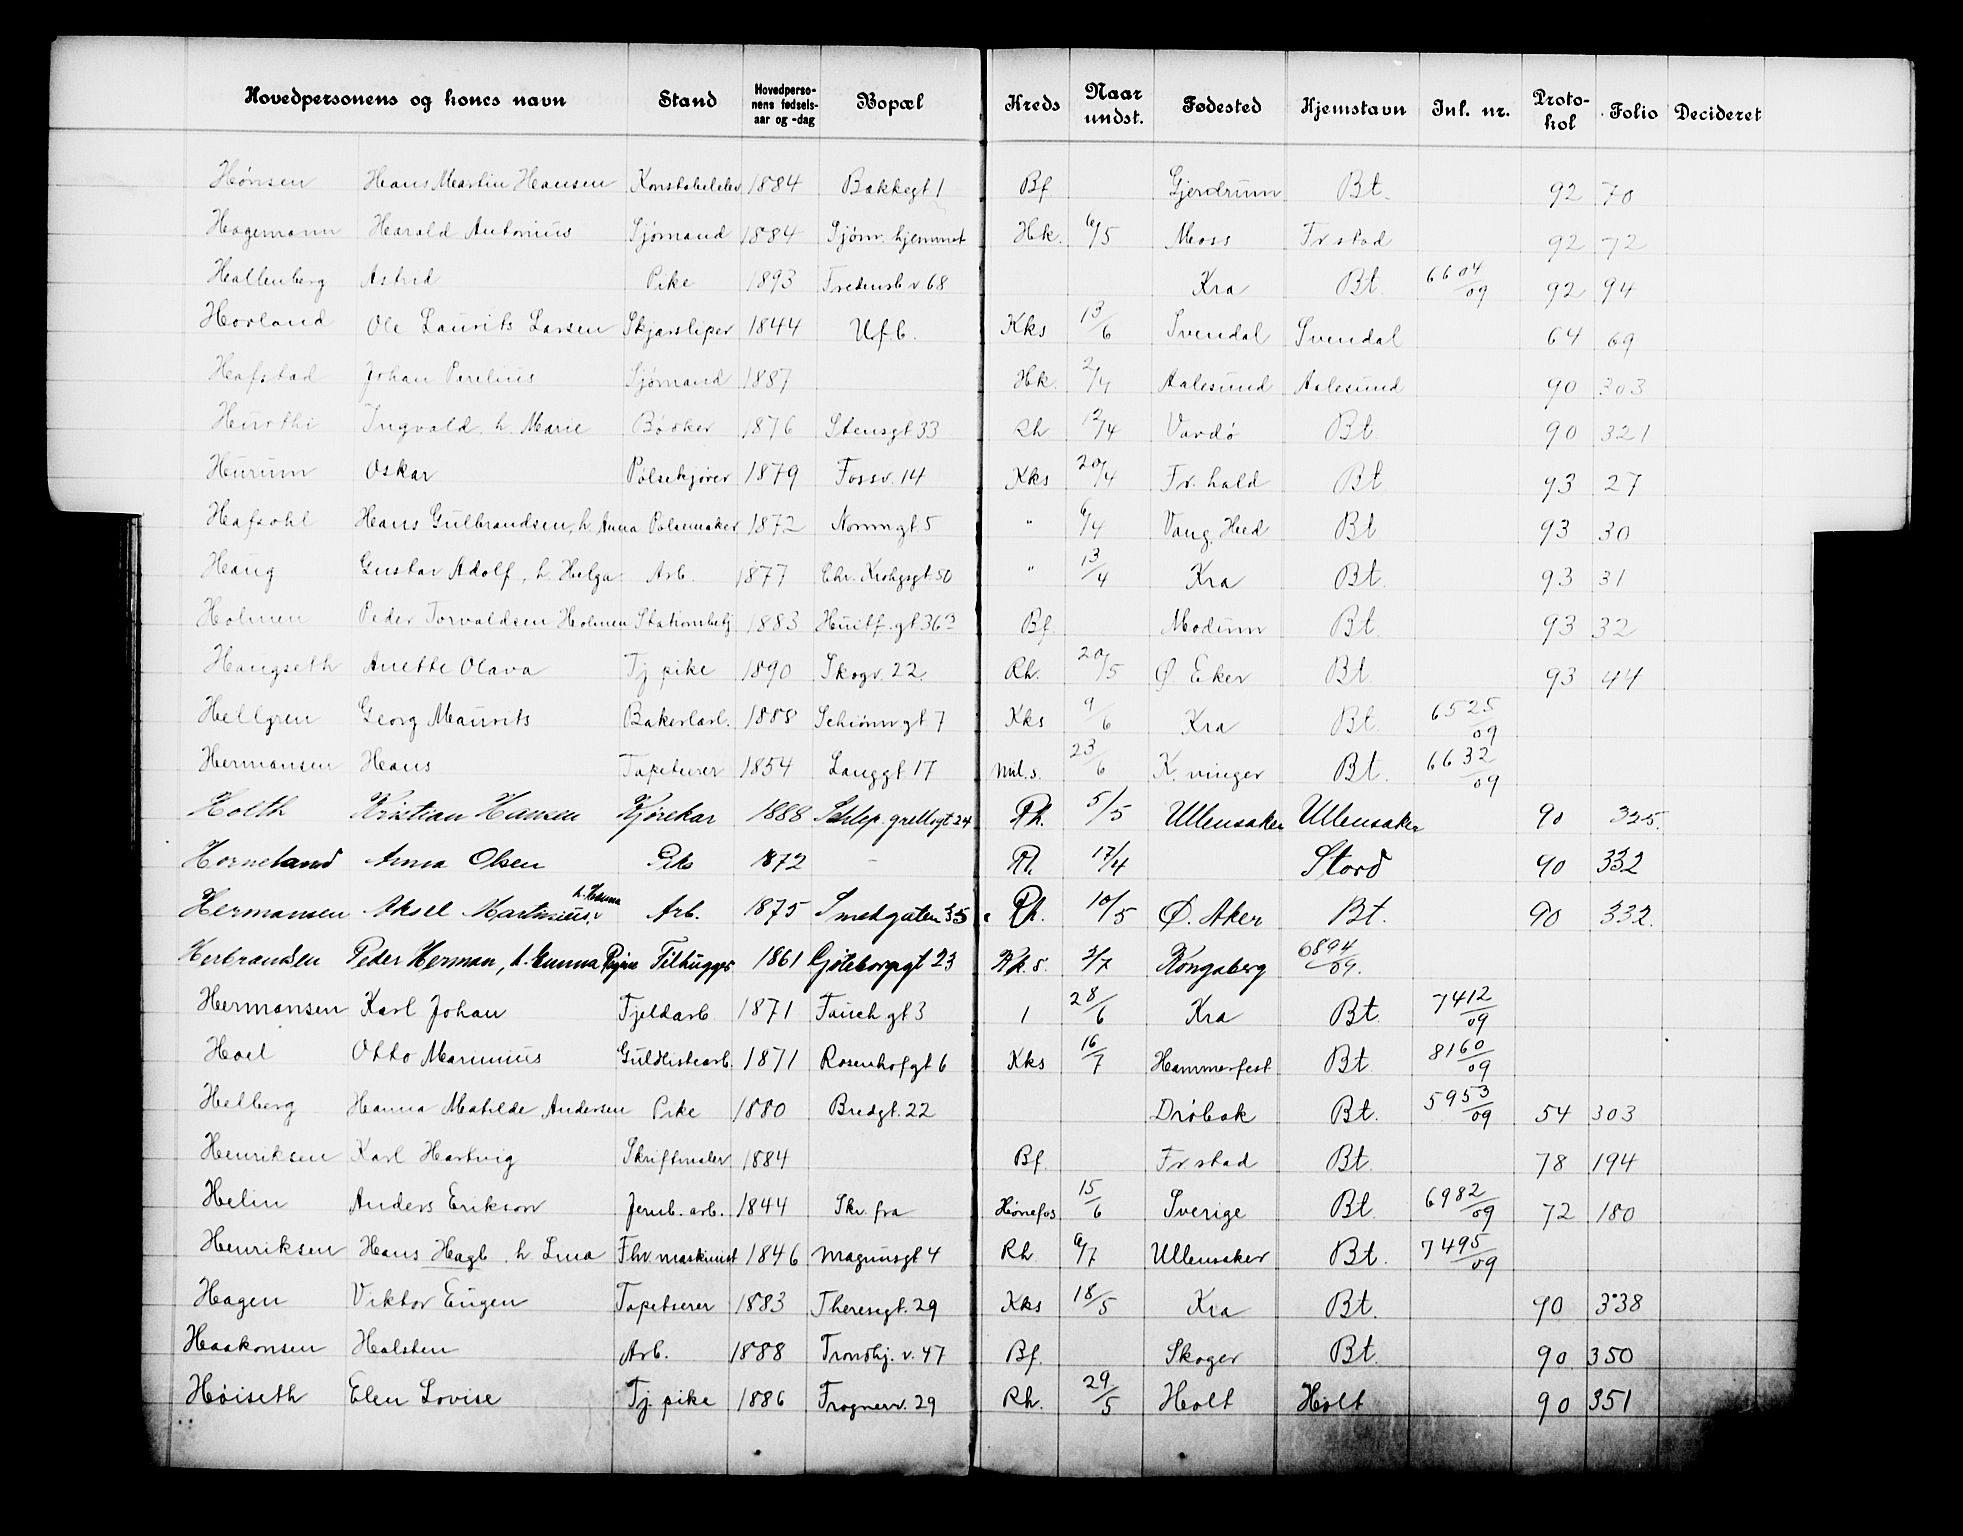 Hovedpersonens og kones navn Stand Hovedperso-nens fødsels-aar og -dag Bopæl Kreds Naar undst. Fødested Hjemstavn Inl. nr. Proto-kol Folio Decideret
Hønsen Hans Martin Hansen Konstabelelev 1884 Bakkegt 1 Bf. Gjerdrum Bt. 92 70
Hagemann Harald Antonius Sjømand 1884 Sjøm. hjemmet Hk. 6/5 Moss Fr stad 92 72
Hallenberg Astrid Pike 1893 Fredensb v 68 Kra Bt. 6604/09 92 94
Hovland Ole Laurits Larsen Skjærsliper 1844 Uf.b. Kks 13/6 Svendal Svendal 64 69
Hafstad Johan Perelius Sjømand 1887 Hk. 2/4 Aalesund Aalesund 90 303
Hurthi Ingvald, h. Marie Bødker 1876 Stensgt 33 Rh 12/4 Vardø Bt. 90 321
Hurum Oskar Pølsekjører 1879 Fossv. 14 Kks 20/4 Fr. hald Bt 93 27
Hafsohl Hans Gulbrandsen, h. Anna Pølsemaker 1872 Nonngt 5 " 6/4 Vang, Hed Bt 93 30
Haug Gustav Adolf, h. Helga Arb. 1877 Chr. Krohgsgt 50 " 13/4 Kra Bt. 93 31
Holmen Peder Torvaldsen Holmen Stationsbetj 1883 Huitf. gt 36 Bf. Modum Bt. 93 32
Haugseth Anette Olava Tj. pike 1890 Skogv. 22 Rh. 20/5 Ø Eker Bt. 93 44
Hellgren Georg Maurits Bakerlærl. 1888 Schiønn gt 7 Kks 9/6 Kra Bt. 6525/09
Hermansen Hans Tapetserer 1854 Langgt 17 Mil. s. 23/6 K. vinger Bt. 6632/09
Holth Kristian Hansen Kjørekar 1888 Schlep. grellsgt 24 Rh. 5/5 Ullensaker Ullensaker 90 325.
Horneland Anna Olsen Pike 1872 - Rh. 17/4 Stord 90 332
Hermansen Aksel Martinius, h. Arb. 1875 Smedgaten 35 Rh. 10/5 Ø. Aker Bt. 90 332.
Herbrandsen Peder Herman, h. Gunna Tilhugger 1861 Gøteborggt 23 Kks. 3/7 Kongsberg 6894/09.
Hermansen Karl Johan Fjeldarb. 1871 Fauch gt 3 1 28/6 Kra Bt. 7412/09
Hoel Otto Marinius Guldlistearb. 1871 Rosenhofgt 6 Kks 16/7 Hammerfest Bt. 8160/09
Helberg Hanna Matilde Andersen Pike 1880 Bredgt. 22 Drøbak Bt. 5953/09 54 303
Henriksen Karl Hartvig Skriftmaler 1884 Bf. Fr stad Bt. 78 194
Helin Anders Erikson Jernb. arb. 1844 Skr. fra Hønefos 15/6 Sverige Bt. 6982/09 72 180
Henriksen Hans Hagb. h Lina Fhv. maskinist 1846 Magnusgt 4 Rh. 6/7 Ullensaker Bt. 7495/09
Hagen Viktor Eugen Tapetserer 1883 Theresegt. 29 Kks 18/5 Kra Bt. 90 338
Haakonsen Halsten Arb. 1888 Trondhj. v. 47 Bf. Skoger Bt. 90 350
Høiseth Elen Lovise Tj. pike 1886 Frognerv. 29 Rh. 29/5 Holt Holt 90 351